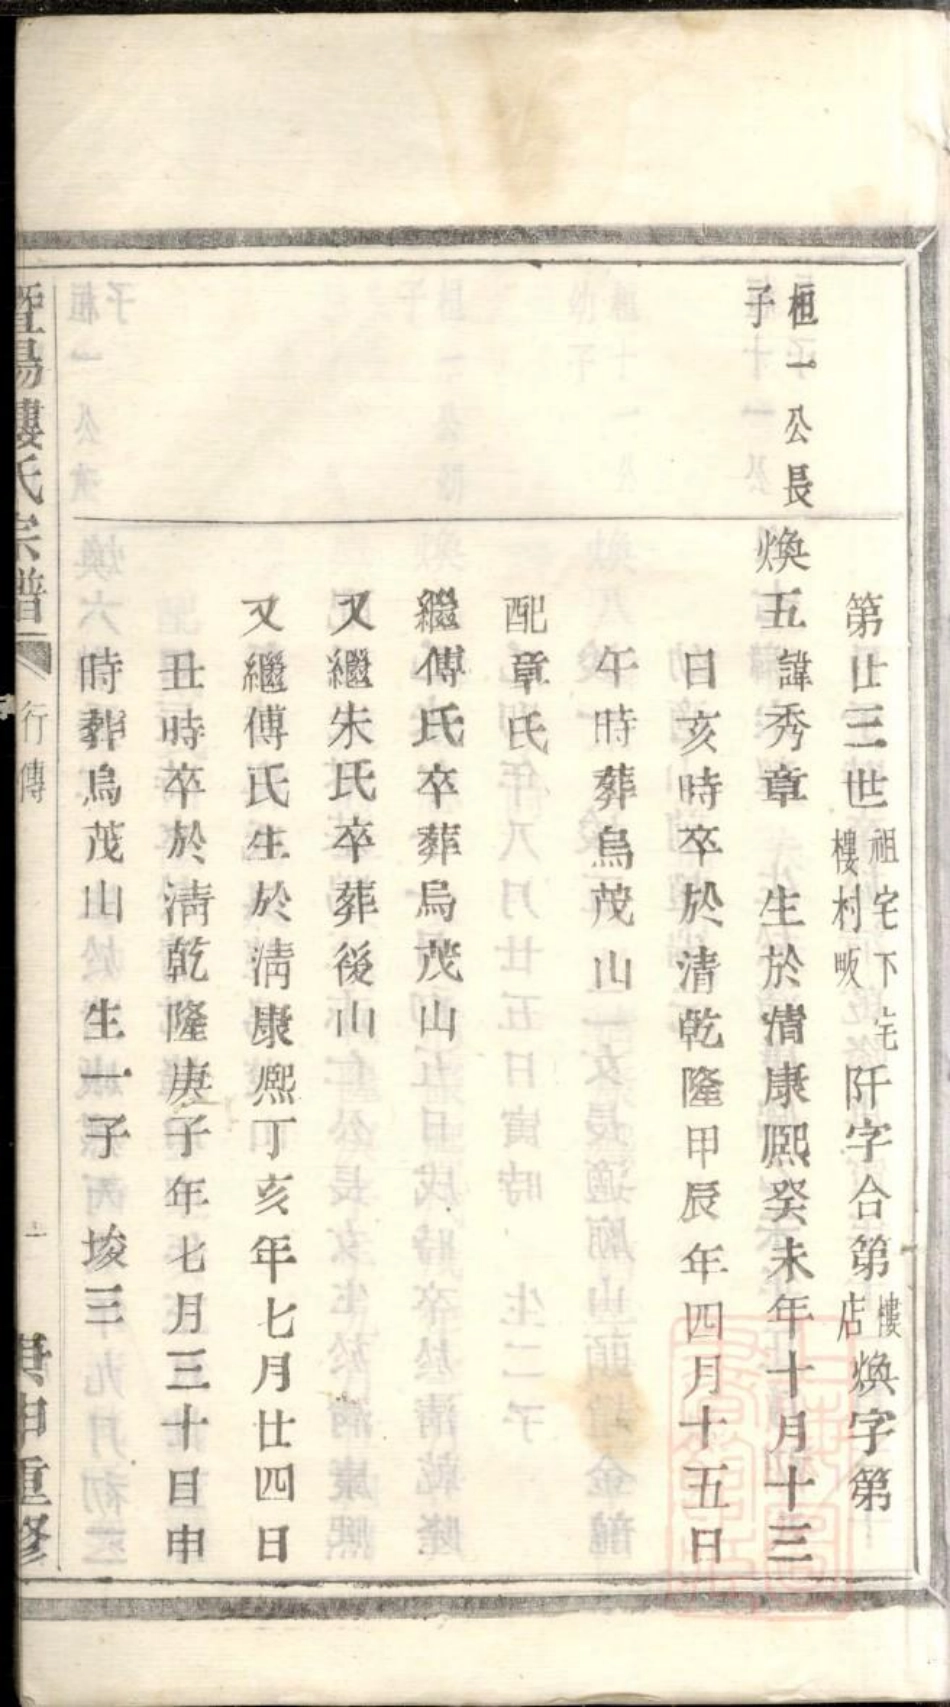 第廿三世祖宅下宅樓村畈阡字合第樓店煥字第
桓一公長
子
煥五諱秀章　生於清康熙癸未年十月十三
日亥時卒於清乾隆甲辰年四月十五日
午時葬烏茂山
配章氏
繼傅氏卒葬烏茂山
又繼朱氏卒葬後山
又繼傅氏生於清康熙丁亥年七月廿四日
丑時卒於清乾隆庚子年七月三十日申
時葬烏茂山　生一子　埈三
暨陽樓氏宗譜　行傳　一　庚申重修